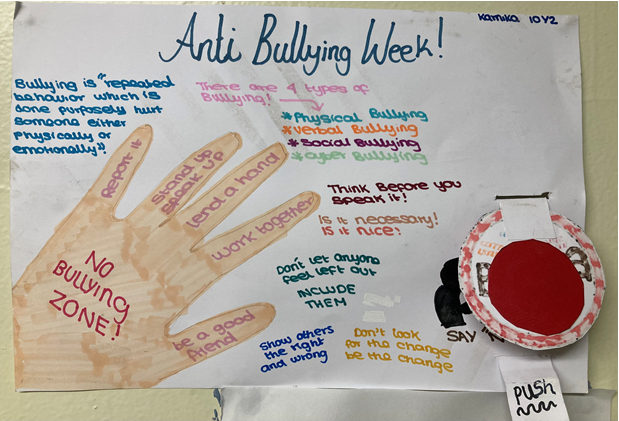 Kamika 10Y2
Anti Bullying Week!
Bullying is "repeated
behavior which is
done purposely hurt
someone either
physically or
emotionally".
There are 4 types of
Bullying!
* Physical Bullying
* Verbal Bullying
* Social Bullying
* Cyber Bullying
Report it
Stand up
speak up
lend a hand
work together
be a good
friend
NO
Bullying
ZONE!
Think Before you
speak it!
Is it necessary!
Is it nice?
Don't let anyone
feel left out
INCLUDE
THEM
Show others
the right
and wrong
Don't look
for the change
be the change
SAY
PUSH